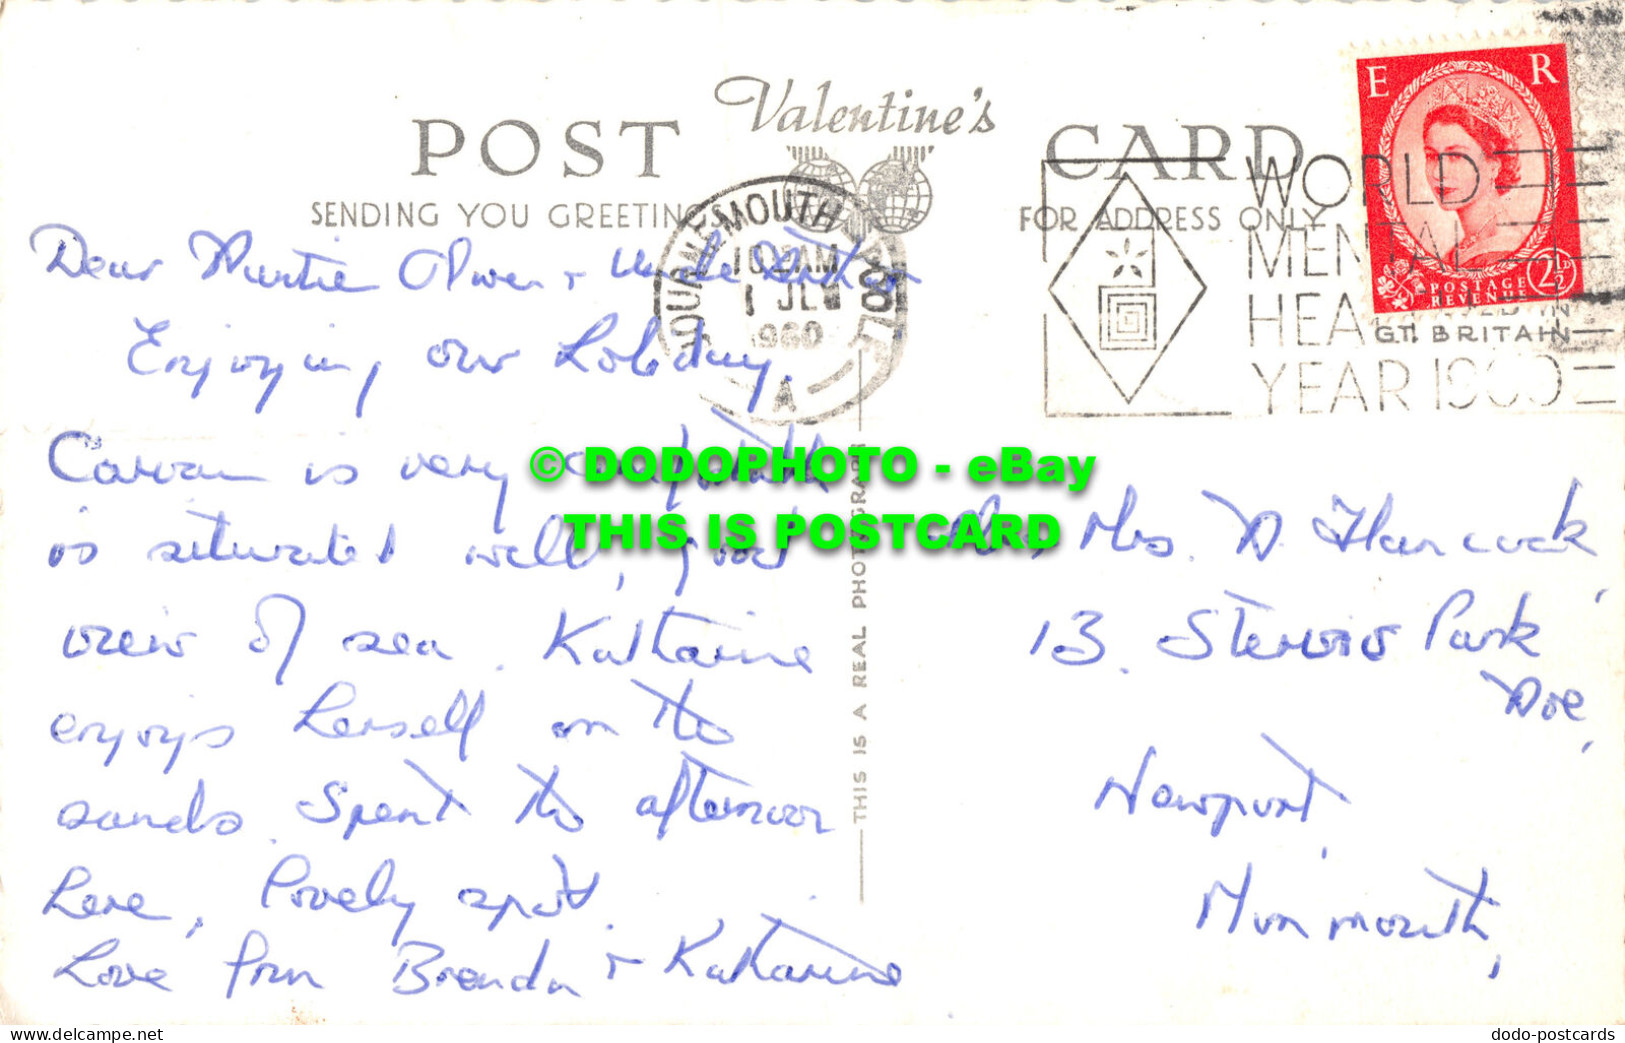 Valentine's
POST CARD
SENDING YOU GREETINGS
FOR ADDRESS ONLY
BOURNEMOUTH POOLE
10 AM
1 JLY
1960
A
WORLD
MENTAL
HEALTH
YEAR 1960
E R
POSTAGE
REVENUE
2½D
GT. BRITAIN
Dear Auntie Olwen + Uncle
Enjoying our holiday.
Caravan is very comfortable
is situated well, good
view of sea. Katharine
enjoys herself on the
sands. Spent the afternoon
here, lovely spot.
Love from Brenda + Katharine
Mrs. D. Hancock,
13. Park
Newport,
Monmouth,
THIS IS A REAL PHOTOGRAPH
© DODOPHOTO - eBay
THIS IS POSTCARD
delcampe.net
dodo-postcards